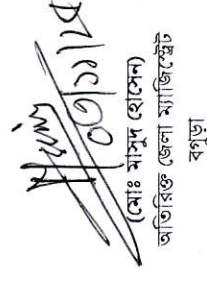 (মোঃ মাসুদ হোসেন)
অতিরিক্ত জেলা ম্যাজিস্ট্রেট
বগুড়া